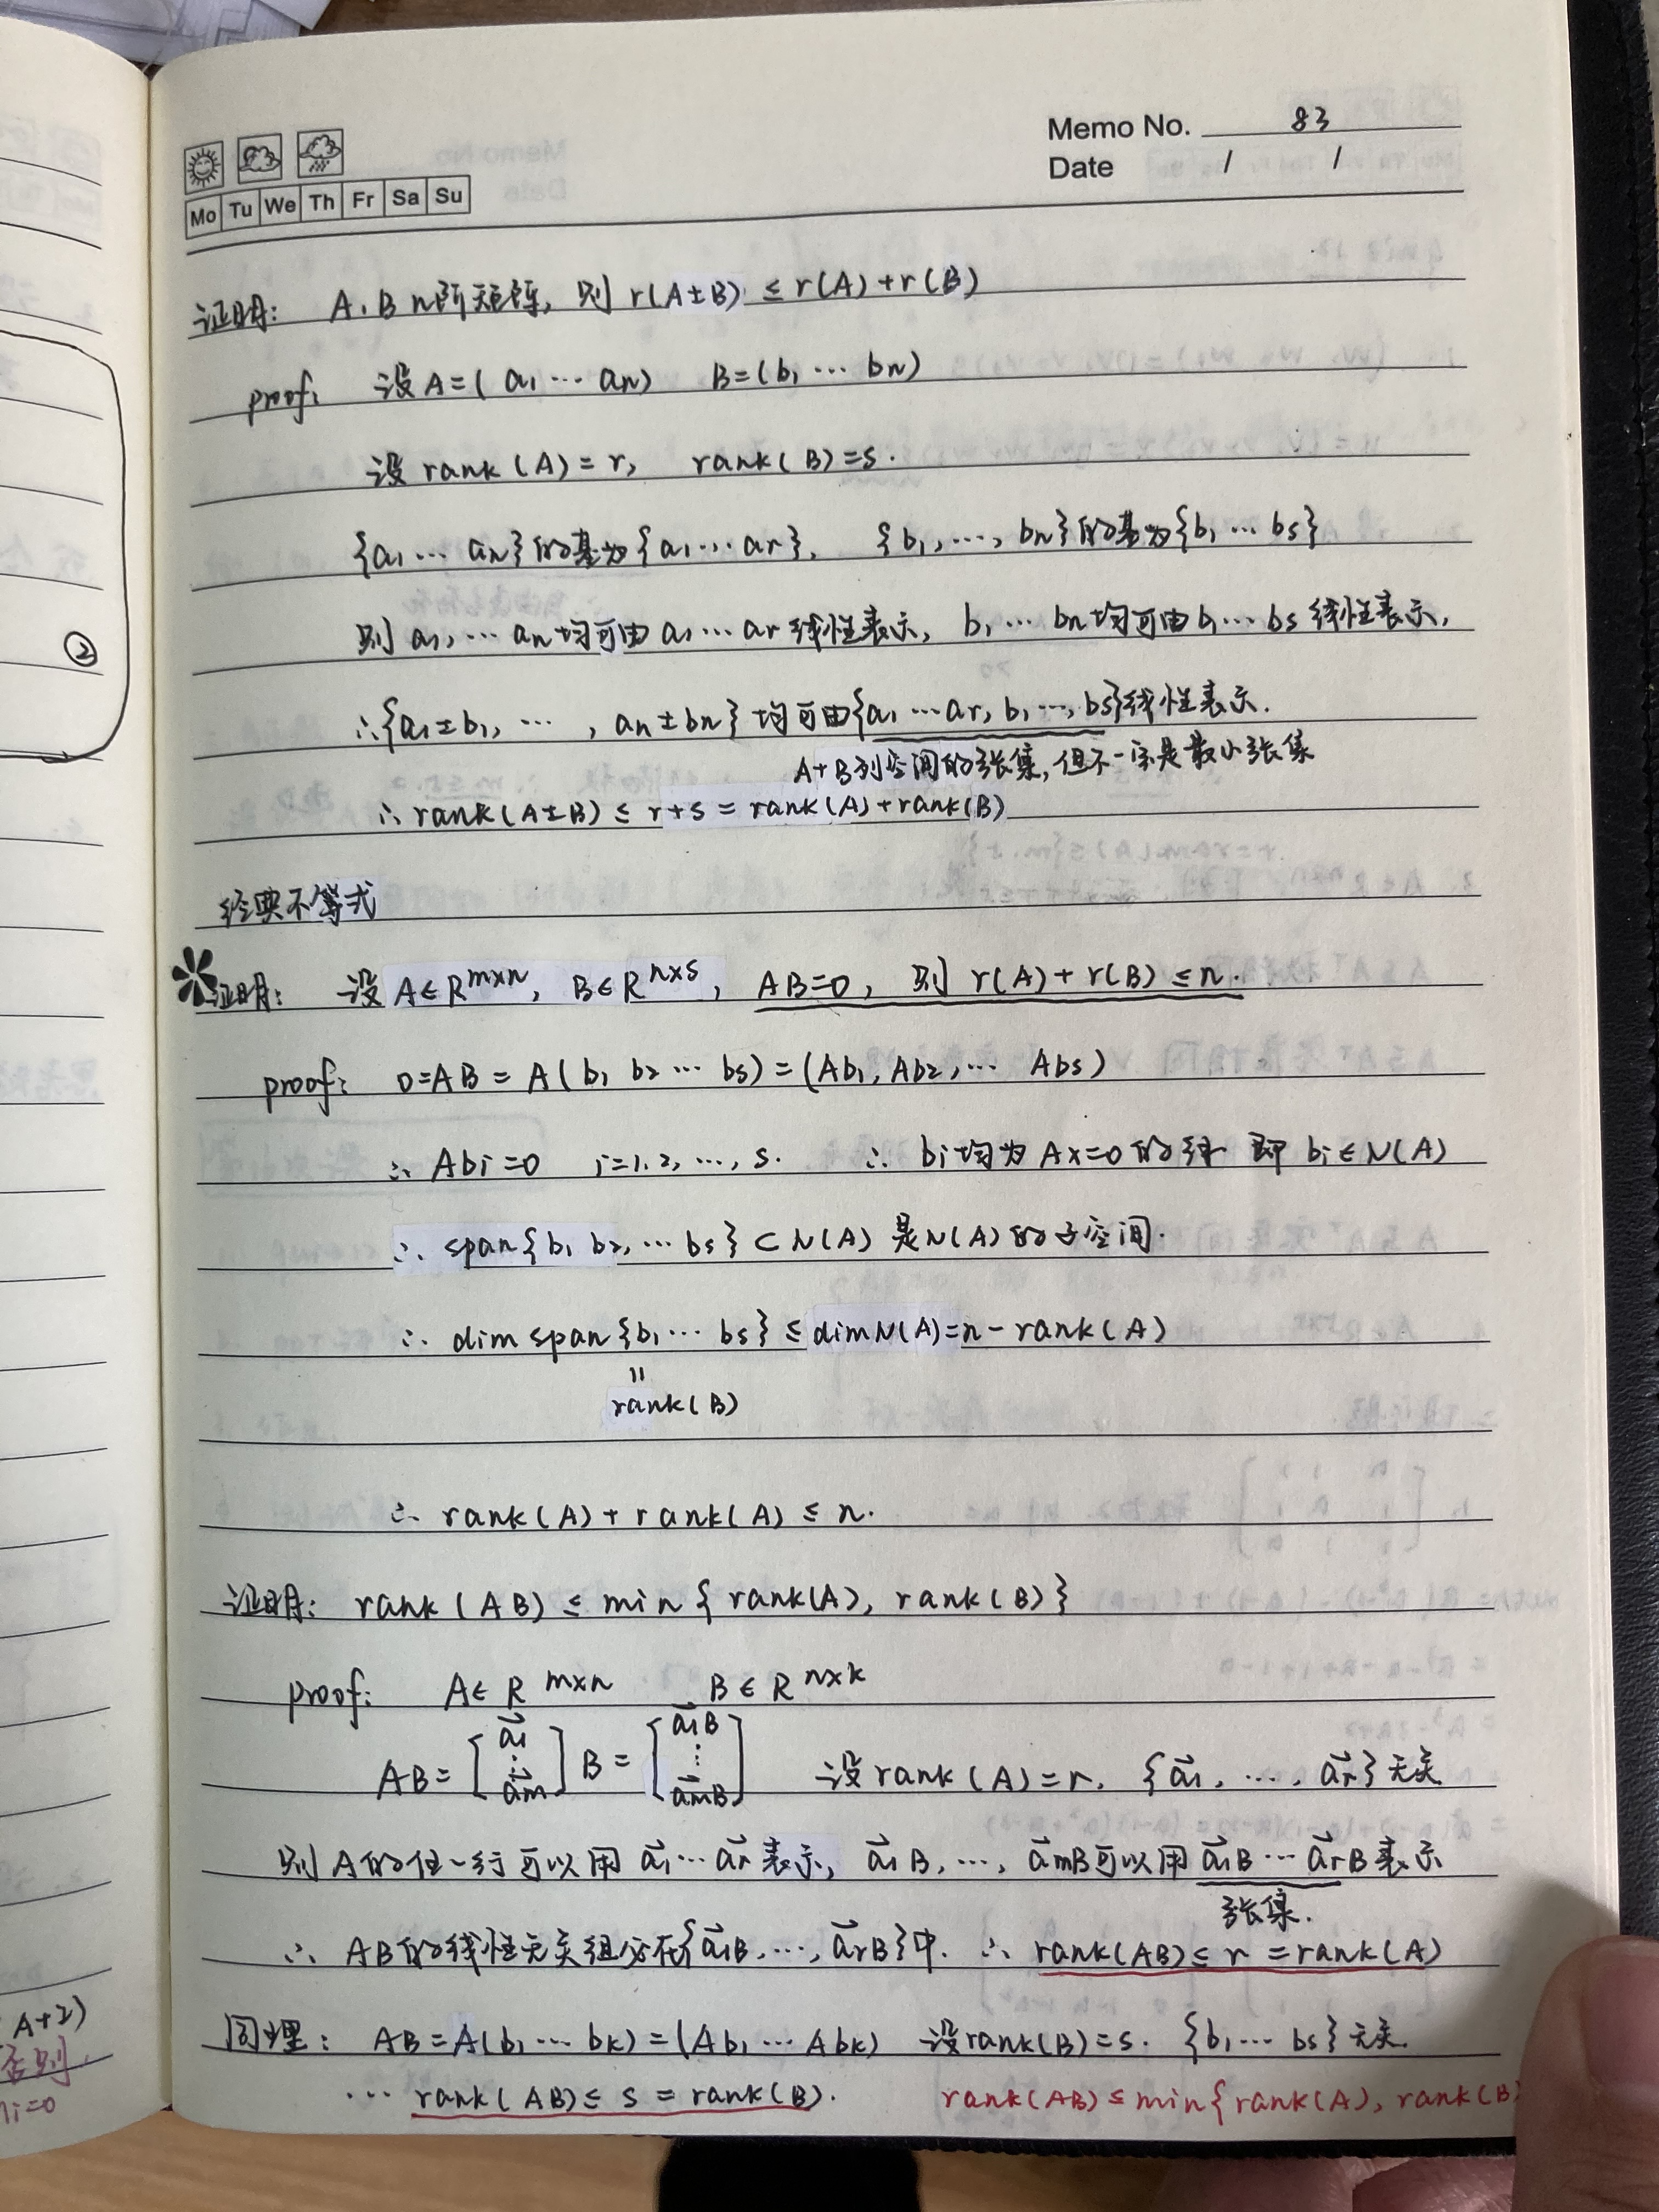 Memo No. 83
Date / /
Mo Tu We Th Fr Sa Su
证明: A, B n阶矩阵, 则 r(A±B) ≤ r(A)+r(B)
proof: 设 A=(a₁ ⋯ aₙ) B=(b₁ ⋯ bₙ)
设 rank(A)=r, rank(B)=s.
{a₁ ⋯ aₙ}的基为{a₁ ⋯ aᵣ}, {b₁, ⋯, bₙ}的基为{b₁ ⋯ bs}
则 a₁, ⋯ aₙ 均可由 a₁ ⋯ aᵣ 线性表示, b₁ ⋯ bₙ 均可由 b₁ ⋯ bs 线性表示,
∴{a₁±b₁, ⋯ , aₙ±bₙ} 均可由{a₁ ⋯ aᵣ, b₁ ⋯, bs}线性表示.
A+B列空间的张集, 但不一定是最小张集
∴ rank(A±B) ≤ r+s = rank(A)+rank(B)
经典不等式
证明: 设 A∈R^{m×n}, B∈R^{n×s}, AB=0, 则 r(A)+r(B) ≤ n.
proof: 0=AB = A(b₁ b₂ ⋯ bs)=(Ab₁, Ab₂, ⋯ Abs)
∴ Abi=0 i=1,2, ⋯, s. ∴ bi均为 Ax=0 的解 即 bi∈N(A)
∴ span{b₁ b₂, ⋯ bs} ⊂ N(A) 是N(A)的子空间.
∴ dim span{b₁ ⋯ bs} ≤ dimN(A)=n-rank(A)
=
rank(B)
∴ rank(A)+rank(A) ≤ n.
证明: rank(AB) ≤ min{rank(A), rank(B)}
proof: A∈R^{m×n} B∈R^{n×k}
AB=[a⃗₁ ⋮ a⃗m]B=[a⃗₁B ⋮ a⃗mB] 设rank(A)=r, {a⃗₁, ⋯, a⃗r}无关
则 A的任一行可以用 a⃗₁⋯a⃗r 表示, a⃗₁B, ⋯, a⃗mB可以用 a⃗₁B ⋯ a⃗rB 表示
张集.
∴ AB的线性无关组必在{a⃗₁B, ⋯, a⃗rB}中. ∴ rank(AB) ≤ r = rank(A)
同理: AB=A(b₁ ⋯ bk)=(Ab₁ ⋯ Abk) 设rank(B)=s. {b₁ ⋯ bs}无关.
⋯ rank(AB) ≤ s = rank(B). rank(AB) ≤ min{rank(A), rank(B)
②
A+2)
否则
i=0